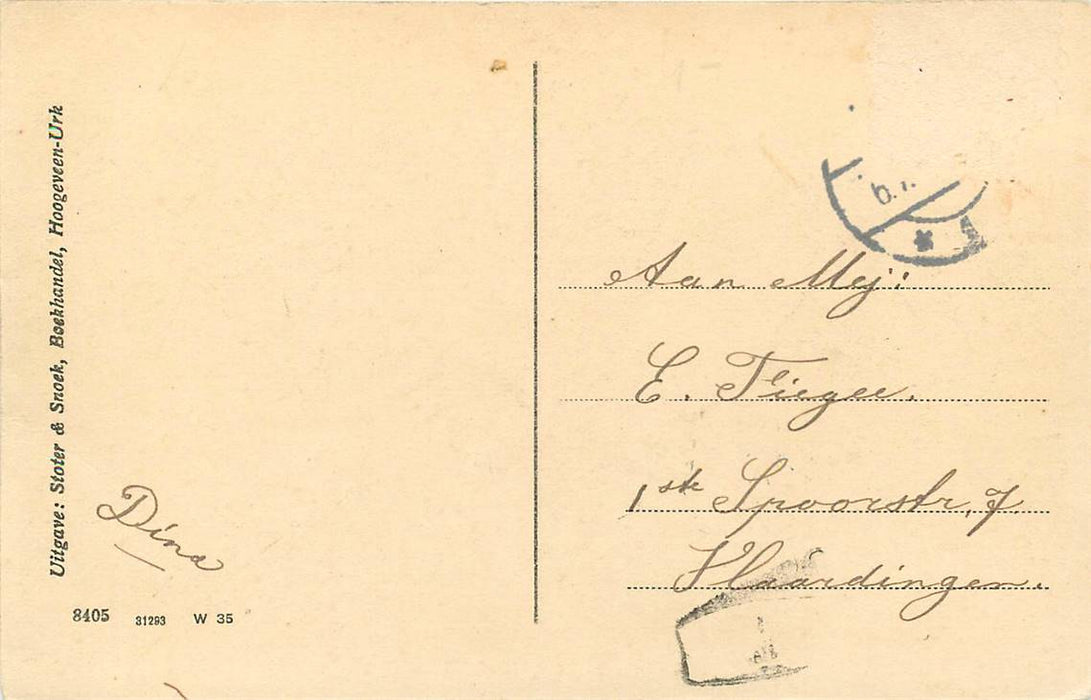 Uitgave: Stoter & Snoek, Boekhandel, Hoogeveen-Urk
Dina
8405 31293 W 35
Aan Mej:
E. Fiegee.
1ste Spoorstr, 7
Vlaardingen.